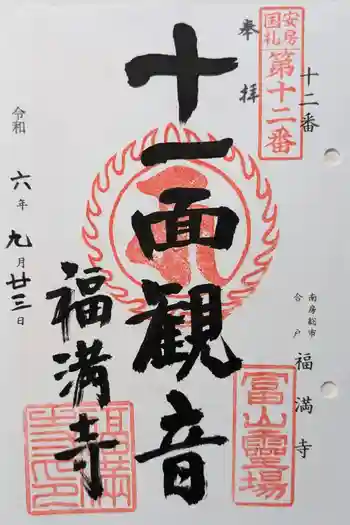 安房
国札
第十二番
十二番
奉拝
十一面観音
南房総市
合戸
福満寺
冨山霊場
福満寺
令和六年九月廿三日